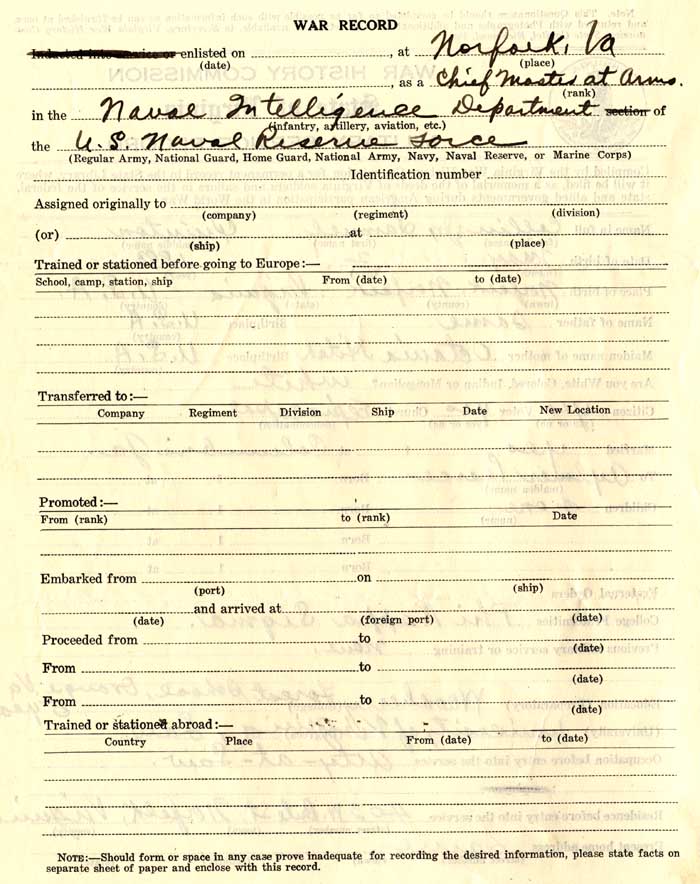 WAR RECORD
Inducted into service or enlisted on ..., at Norfolk, Va
(date) (place)
..., as a Chief Master at Arms.
(rank)
in the Naval Intelligence Department section of
(infantry, artillery, aviation, etc.)
the U.S. Naval Reserve Force
(Regular Army, National Guard, Home Guard, National Army, Navy, Naval Reserve, or Marine Corps)
Identification number
Assigned originally to
(company) (regiment) (division)
(or) at
(ship) (place)
Trained or stationed before going to Europe:—
School, camp, station, ship From (date) to (date)
Transferred to:—
Company Regiment Division Ship Date New Location
Promoted:—
From (rank) to (rank) Date
Embarked from on
(port) (ship)
and arrived at
(date) (foreign port) (date)
Proceeded from to
(date)
From to
(date)
From to
(date)
Trained or stationed abroad:—
Country Place From (date) to (date)
NOTE:—Should form or space in any case prove inadequate for recording the desired information, please state facts on
separate sheet of paper and enclose with this record.